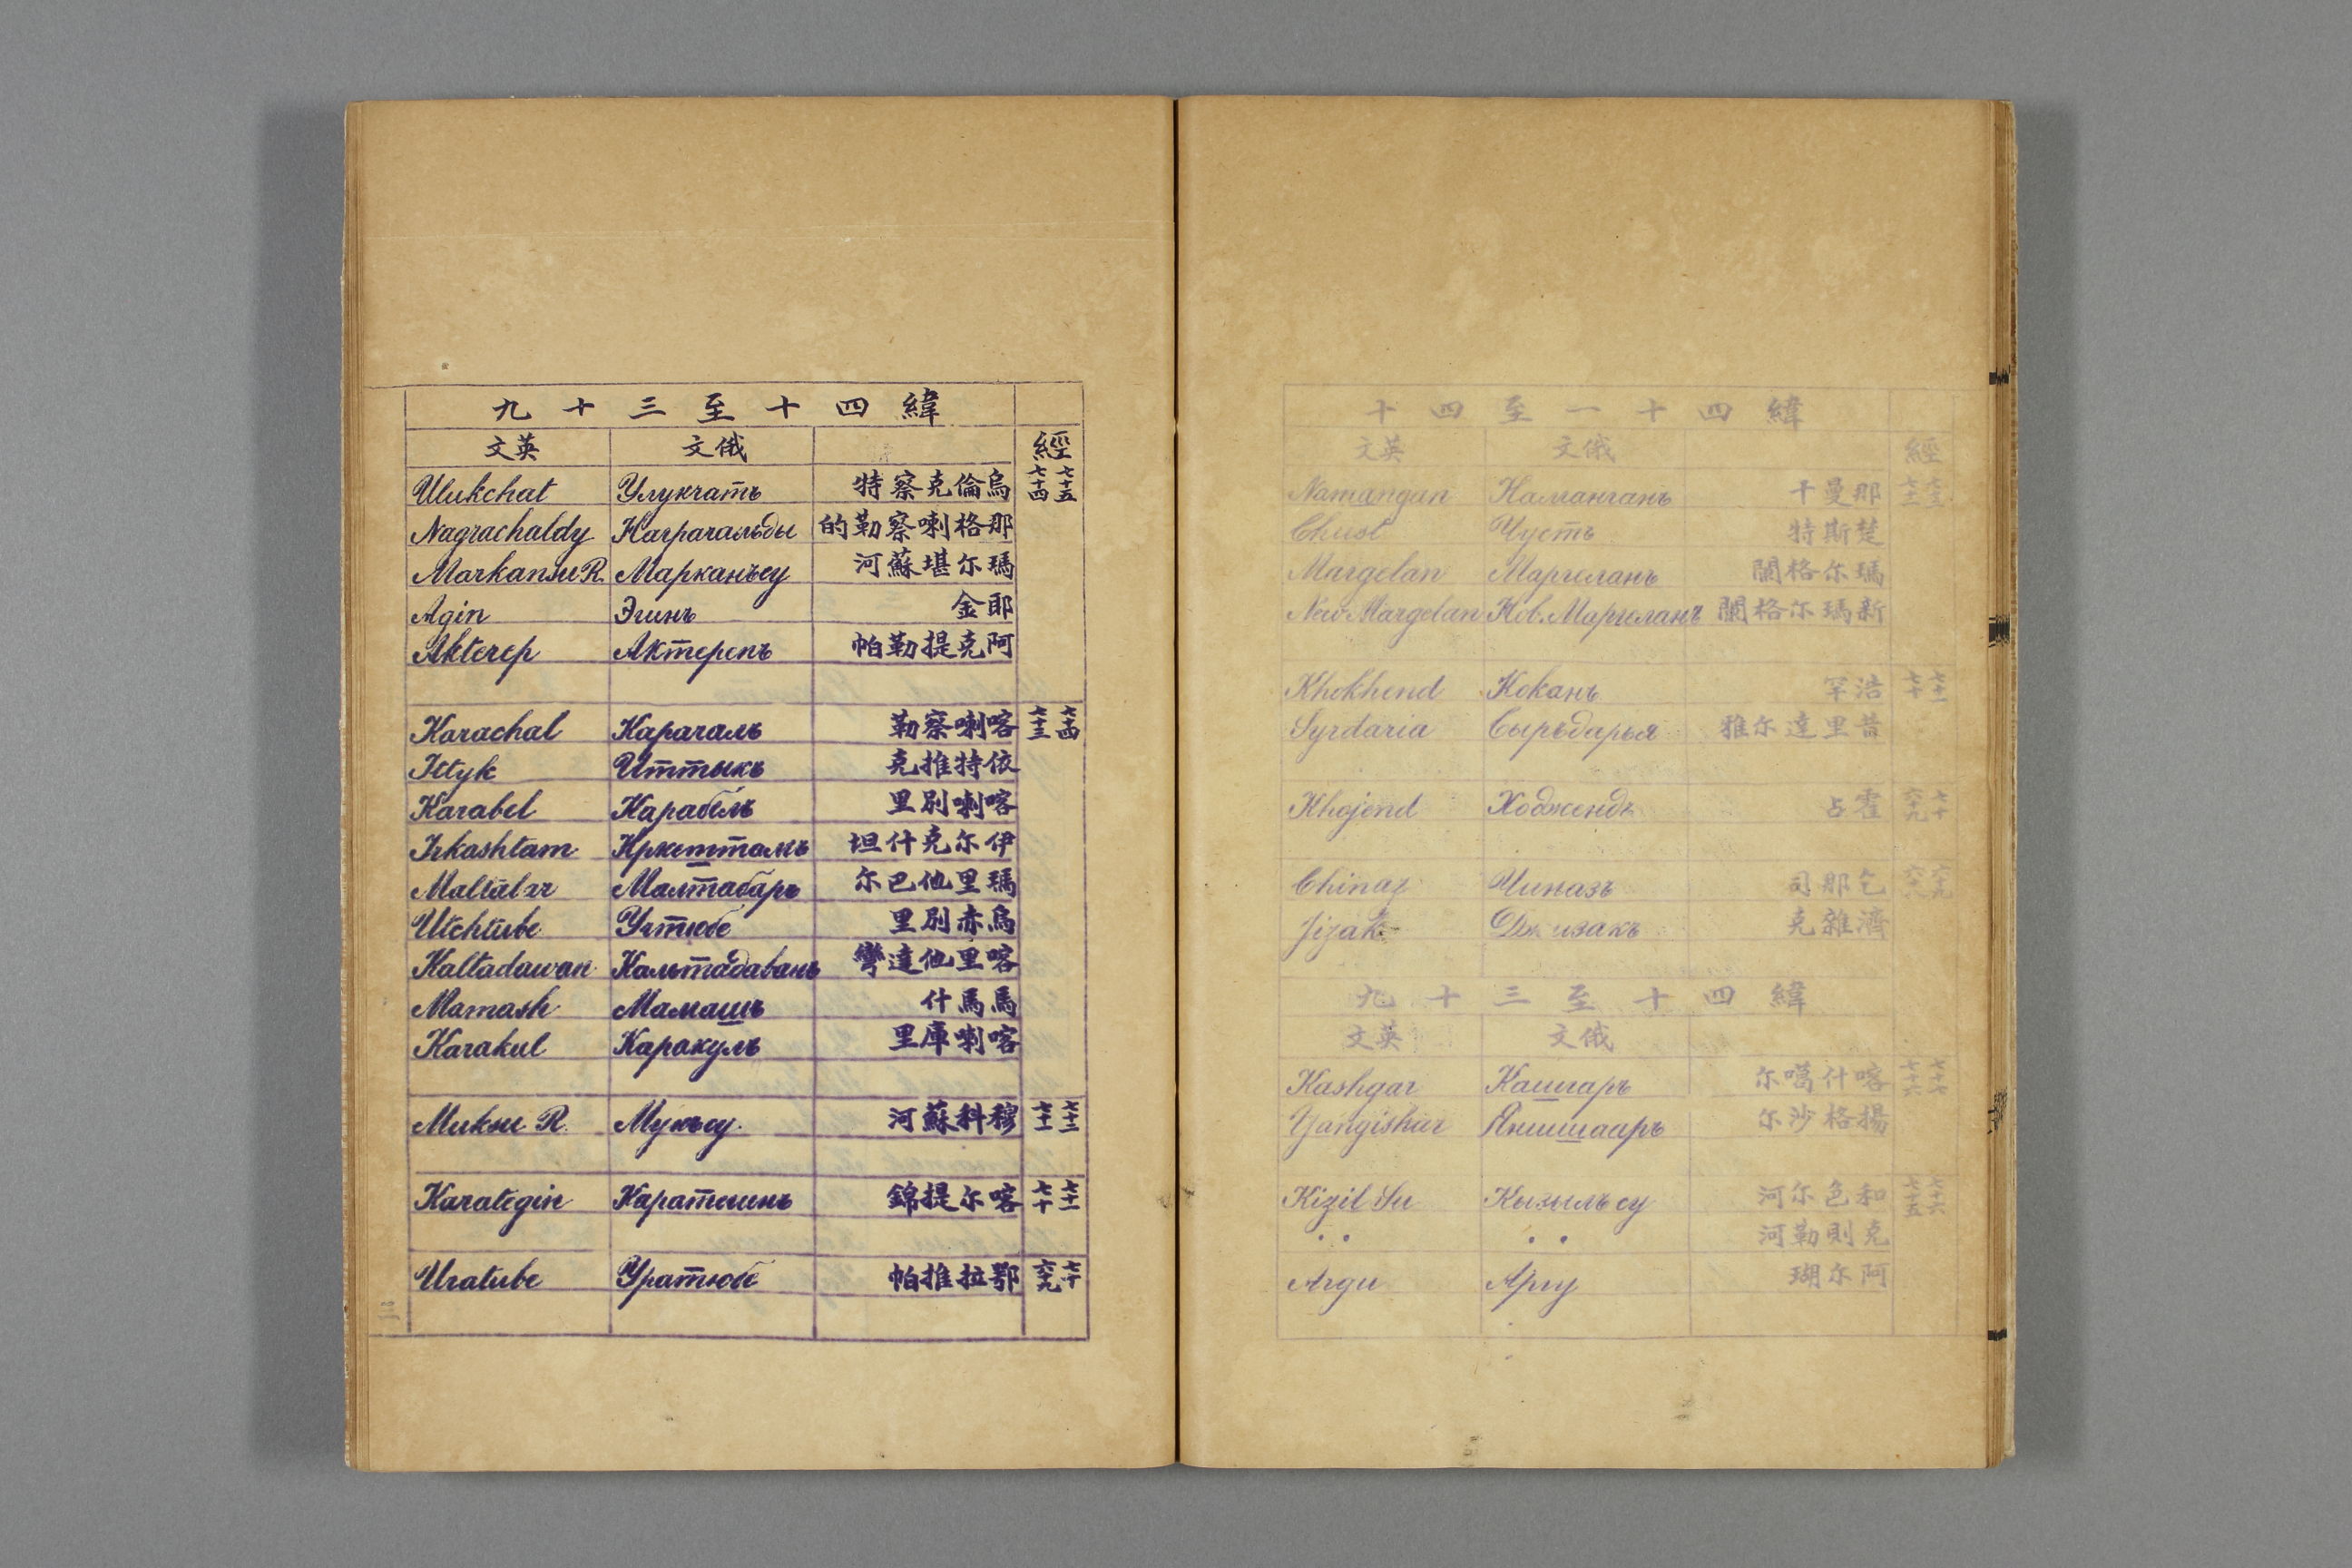 緯四十一至四十
經 俄文 英文
七十二 七十一 那曼干 Наманганъ Namangan
楚斯特 Чустъ Chust
瑪尔格闌 Маргеланъ Margelan
新瑪尔格闌 Нов. Маргеланъ New Margelan
七十一 七十 浩罕 Коканъ Khokhend
昔里達尔雅 Сырьдарья Syrdaria
七十 六十九 霍占 Ходжендъ Khojend
六十九 六十八 乞那司 Чиназъ Chinaz
濟雜克 Джизакъ Jizak
緯四十至三十九
俄文 英文
七十七 七十六 喀什噶尔 Кашгаръ Kashgar
揚格沙尔 Янишааръ Yangishar
七十六 七十五 和色尔河 Кызылъ су Kizil Su
克則勒河 • • • •
阿尔瑚 Аргу Argu
緯四十至三十九
經 俄文 英文
七十五 七十四 烏倫克察特 Улукчатъ Ulukchat
那格喇察勒的 Награчальды Nagrachaldy
瑪尔堪蘇河 Марканъсу Markansu R.
郎金 Эгинъ Agin
阿克提勒帕 Актерепъ Akterep
七十四 七十三 喀喇察勒 Карачаль Karachal
依特推克 Иттыкъ Ittyk
喀喇別里 Карабель Karabel
伊尔克什坦 Иркештамъ Irkashtam
瑪里他巴尔 Малтабаръ Maltabar
烏赤別里 Учтюбе Utchtube
喀里他達彎 Кальтадаванъ Kaltadawan
馬馬什 Мамашъ Mamash
喀喇庫里 Каракуль Karakul
七十二 七十一 穆科蘇河 Мукъсу. Muksu R.
七十一 七十 喀尔提錦 Каратегинъ Karategin
七十 六十九 鄂拉推帕 Уратюбе Uratube